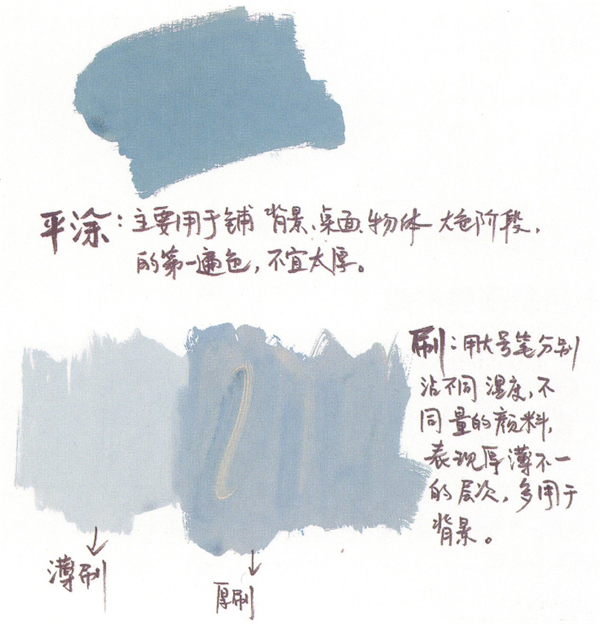 平涂：主要用于铺背景、桌面、物体大色阶段，
的第一遍色，不宜太厚。
刷：用大号笔分别
沾不同湿度，不
同量的颜料，
表现厚薄不一
的层次，多用于
背景。
薄刷
厚刷